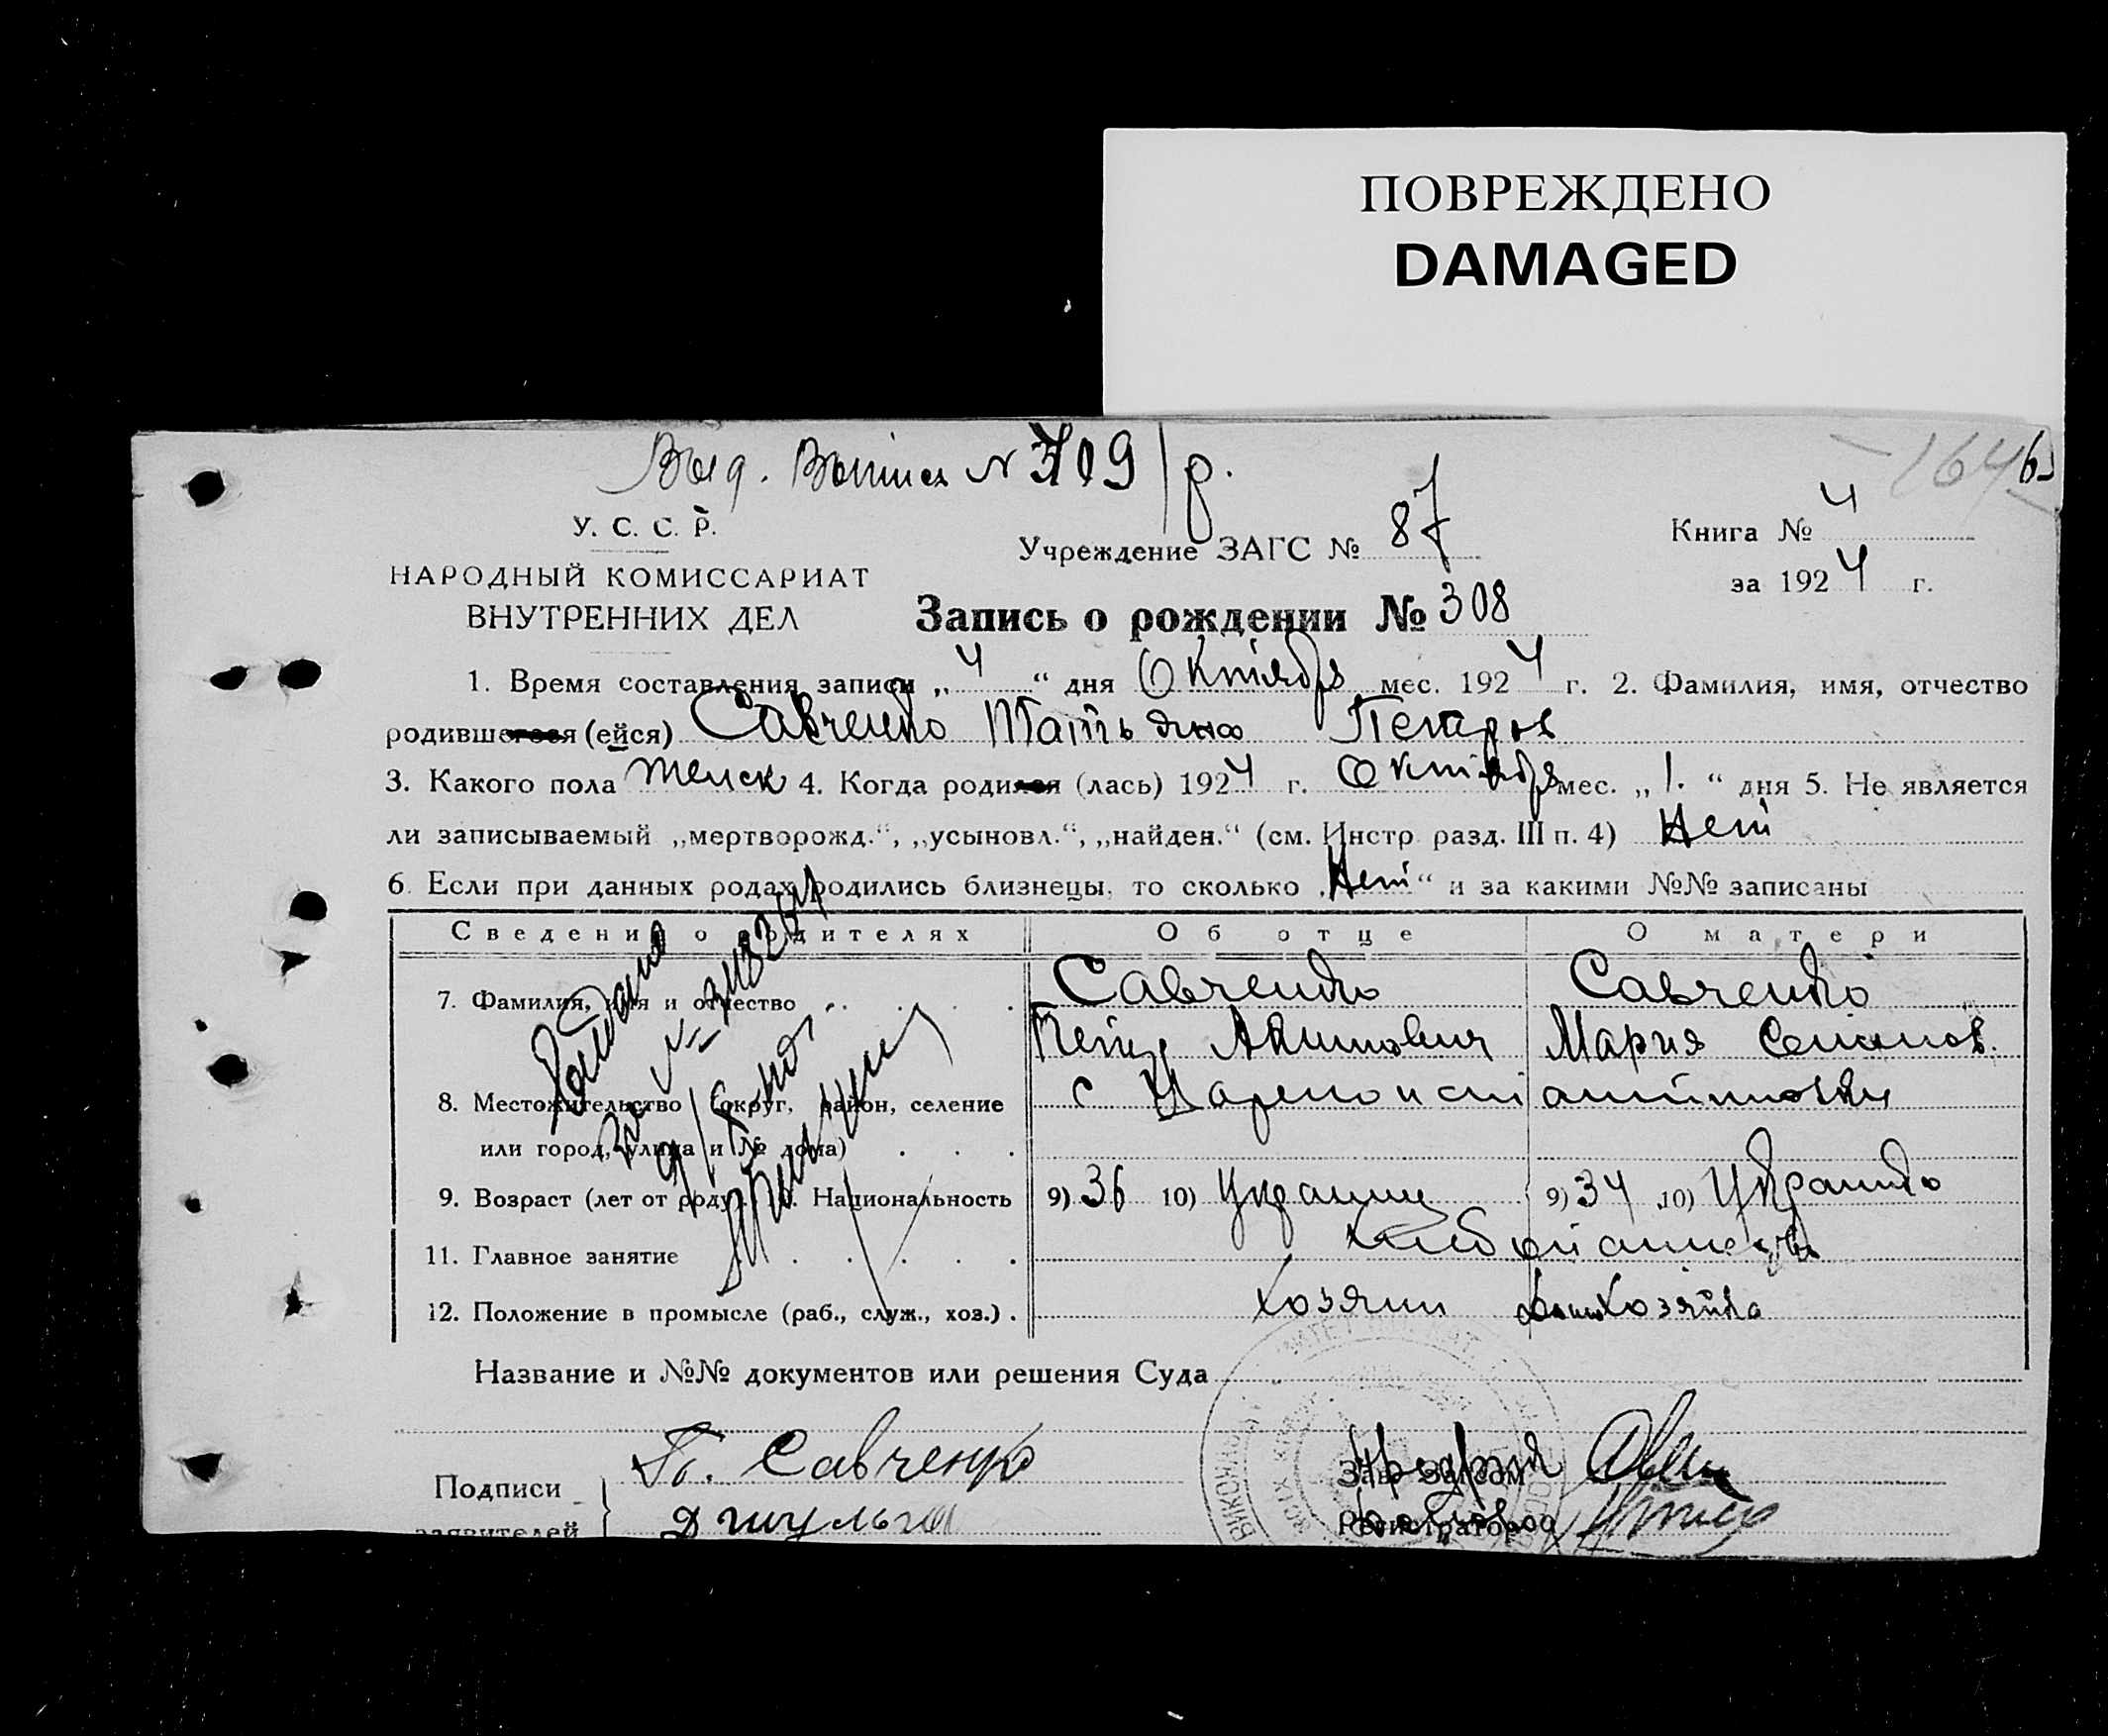 ПОВРЕЖДЕНО
DAMAGED
N 709/р.
У. С. С. Р.
Учреждение ЗАГС № 87
Книга № 4
НАРОДНЫЙ КОМИССАРИАТ
за 1924 г.
ВНУТРЕННИХ ДЕЛ
Запись о рождении № 308
1. Время составления записи „4“ дня Октября мес. 1924 г. 2. Фамилия, имя, отчество
родившегося (ейся) Савченко Татьяна Петров
3. Какого пола женск 4. Когда родился (лась) 1924 г. Октября мес. „1.“ дня 5. Не является
ли записываемый „мертворожд.“, „усыновл.“, „найден.“ (см. Инстр. разд. III п. 4) Нет
6. Если при данных родах родились близнецы, то сколько „Нет“ и за какими №№ записаны
Сведения о родителях Об отце О матери
7. Фамилия, имя и отчество Савченко Савченко
Петр Акимович Мария Семенов.
8. Местожительство (округ, район, селение с
или город, улица и № дома)
9. Возраст (лет от роду). 10. Национальность 9) 36 10) Украинц 9) 34 10) Украинка
11. Главное занятие
12. Положение в промысле (раб., служ., хоз.) Хозяин домхозяйка
Название и №№ документов или решения Суда
Подписи П. Савченко
заявителей Д Шульга
Регистратор